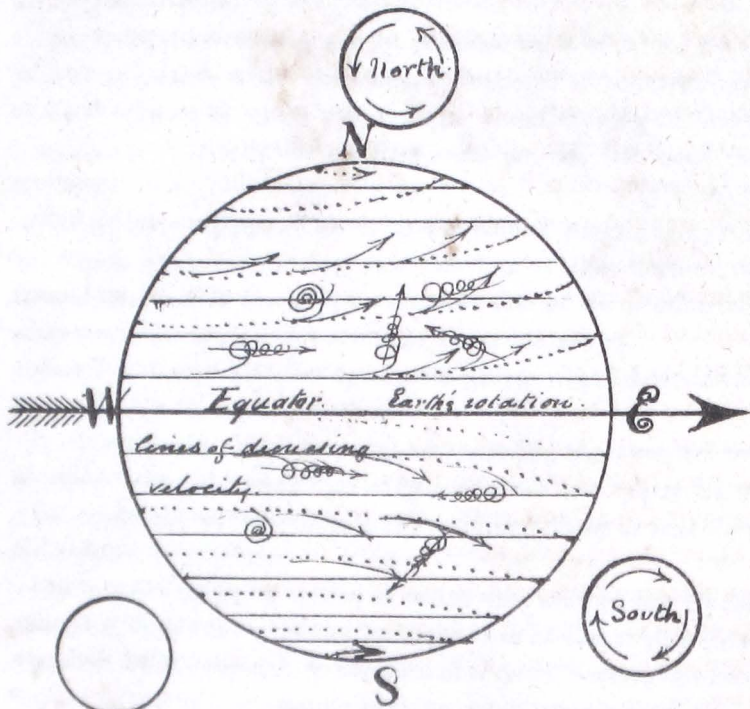 North
N
W
Equator
Earth's rotation
E
lines of decreasing
velocity
South
S